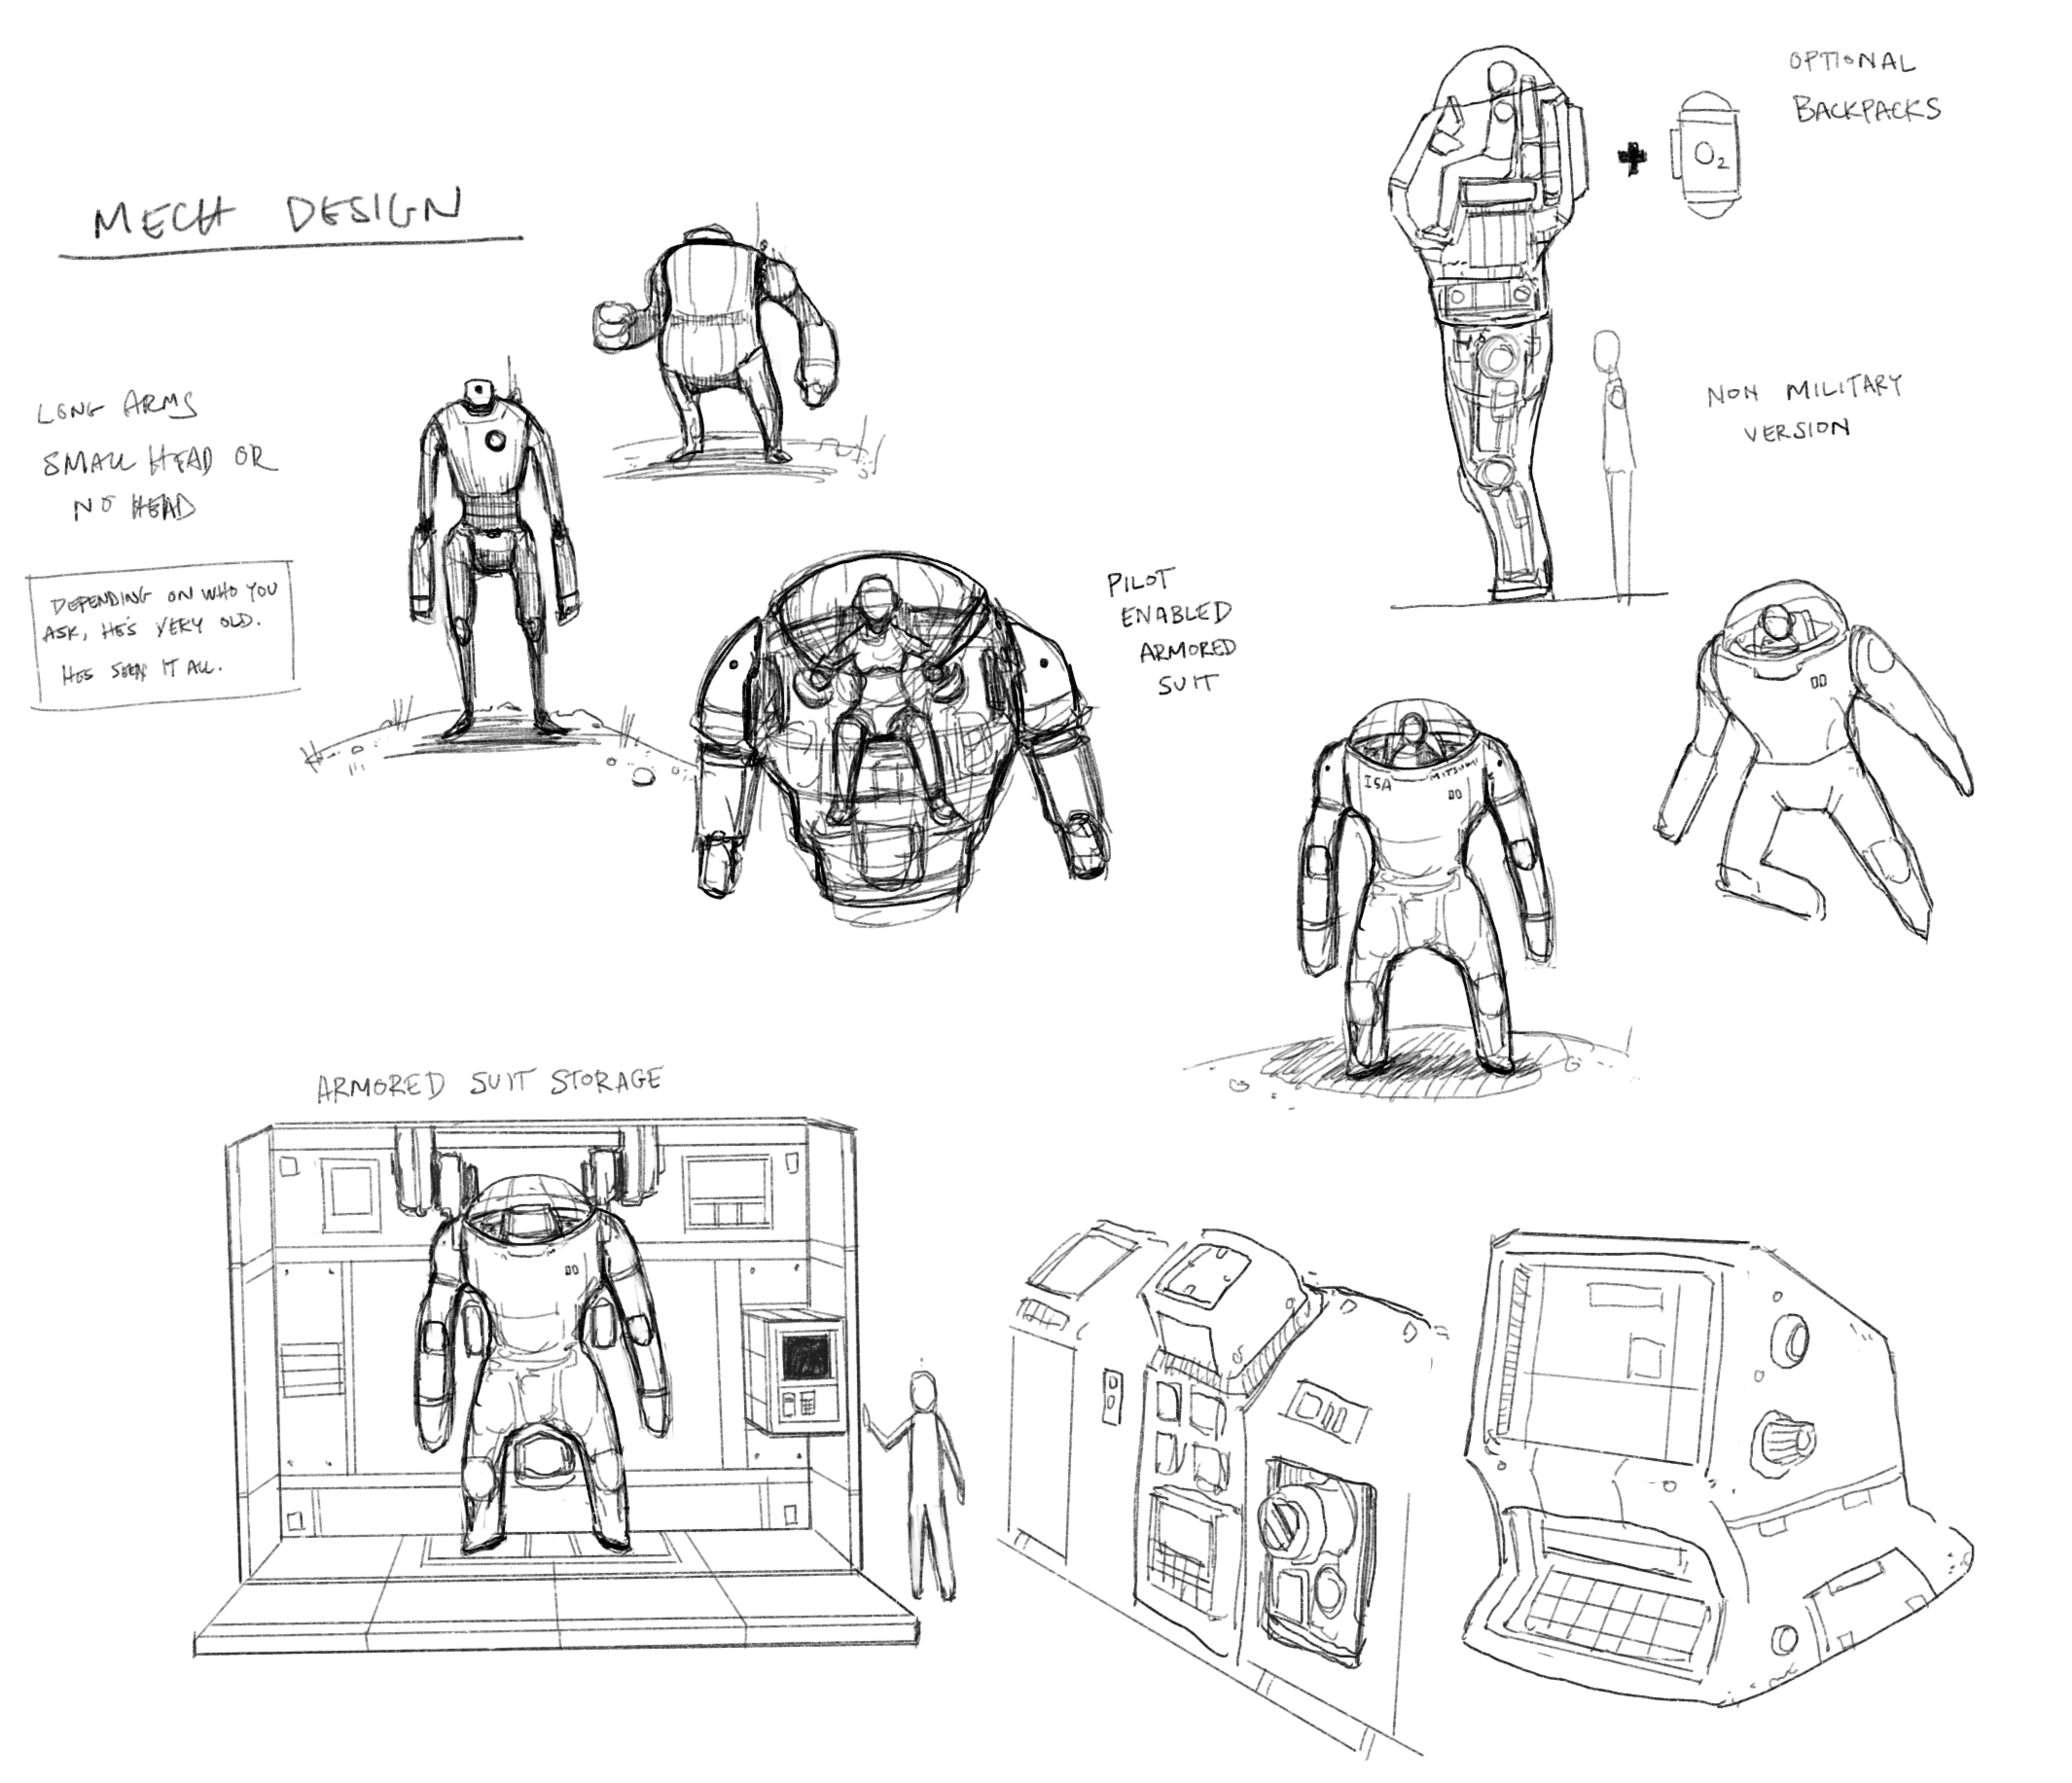 MECH DESIGN
LONG ARMS
SMALL HEAD OR
NO HEAD
DEPENDING ON WHO YOU
ASK, HE'S VERY OLD.
HES SEEN IT ALL.
PILOT
ENABLED
ARMORED
SUIT
OPTIONAL
BACKPACKS
O2
NON MILITARY
VERSION
ISA
MITSUMI
00
00
ARMORED SUIT STORAGE
00